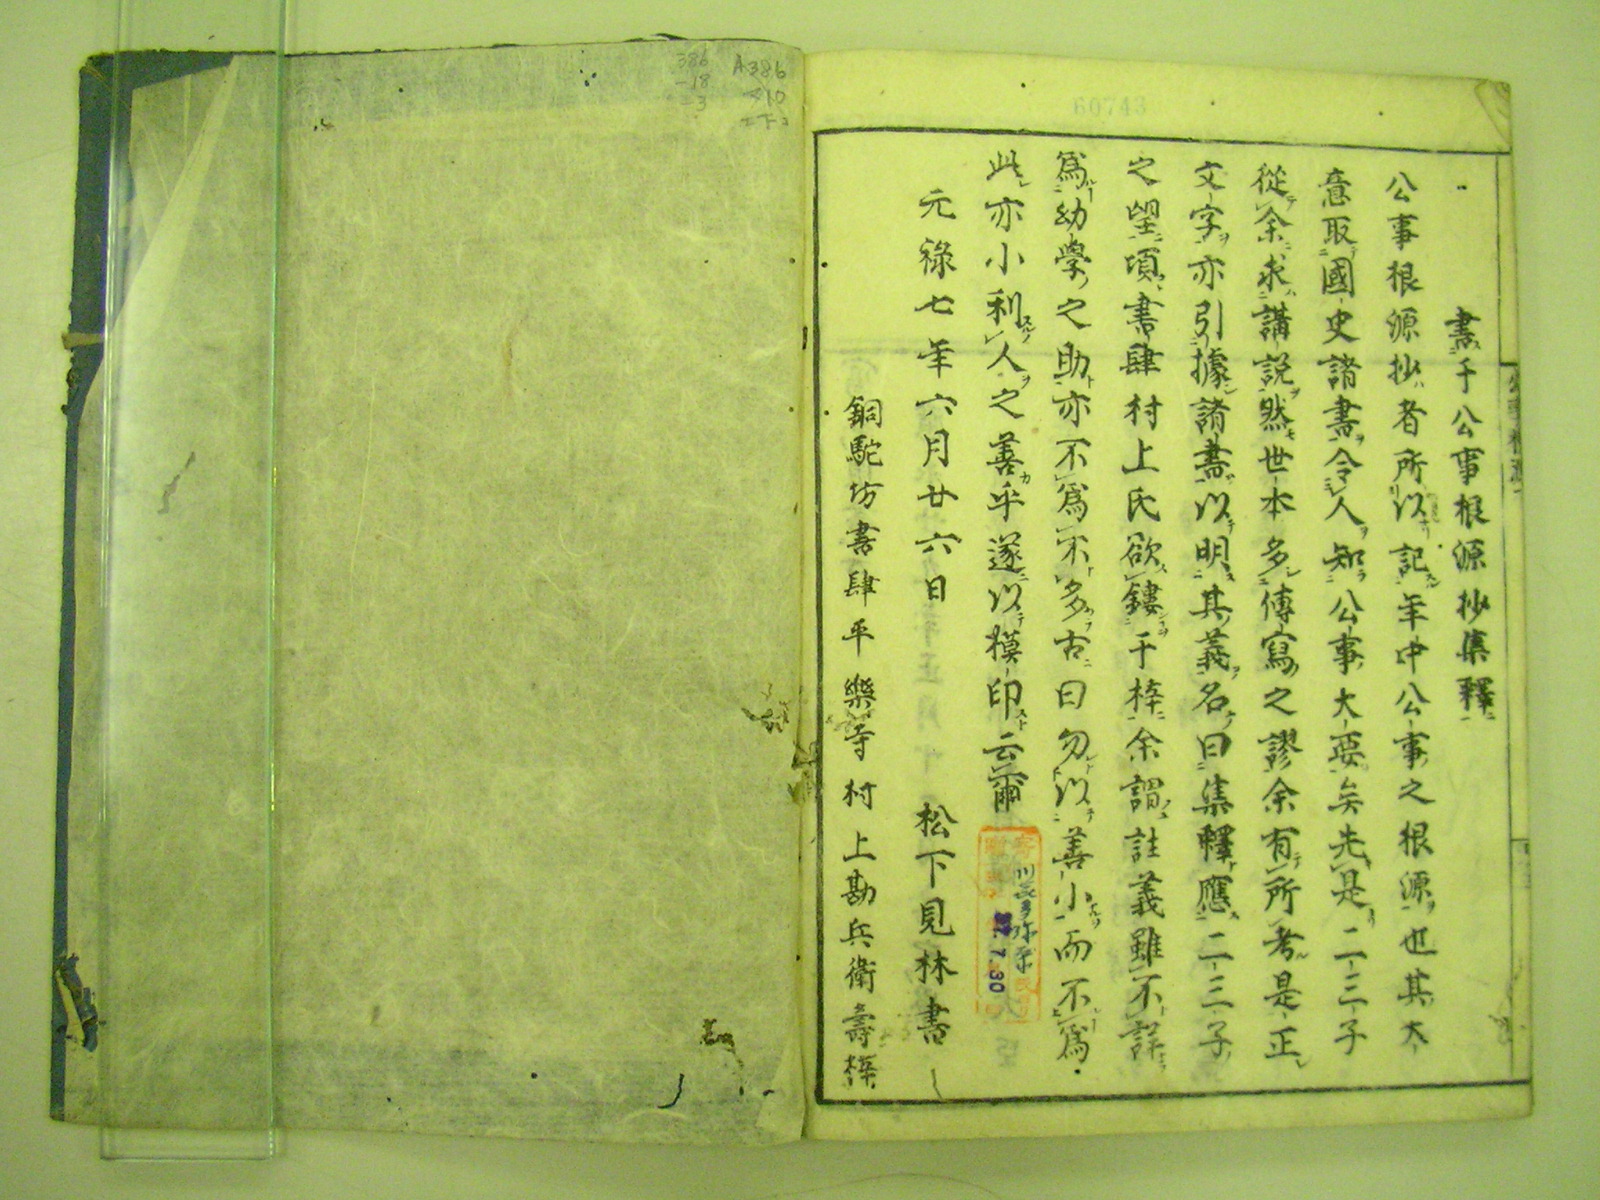 書于公事根源抄集釋
公事根源抄者所以記年中公事之根源也其大
意取國史諸書令人知公事大要矣先是二三子
從余求講説然世本多傳寫之謬余有所考是正
文字亦引據諸書以明其義名曰集釋應二三子
之望頃書肆村上氏欲鏤于梓余謂註義雖不詳
爲幼學之助亦不爲不多古曰勿以善小而不爲
此亦小利人之善乎遂以摸印云爾
元祿七年六月廿六日 松下見林書
銅駝坊書肆平樂寺村上勘兵衛壽梓
60743
A386
10
386
-18
3
7.30